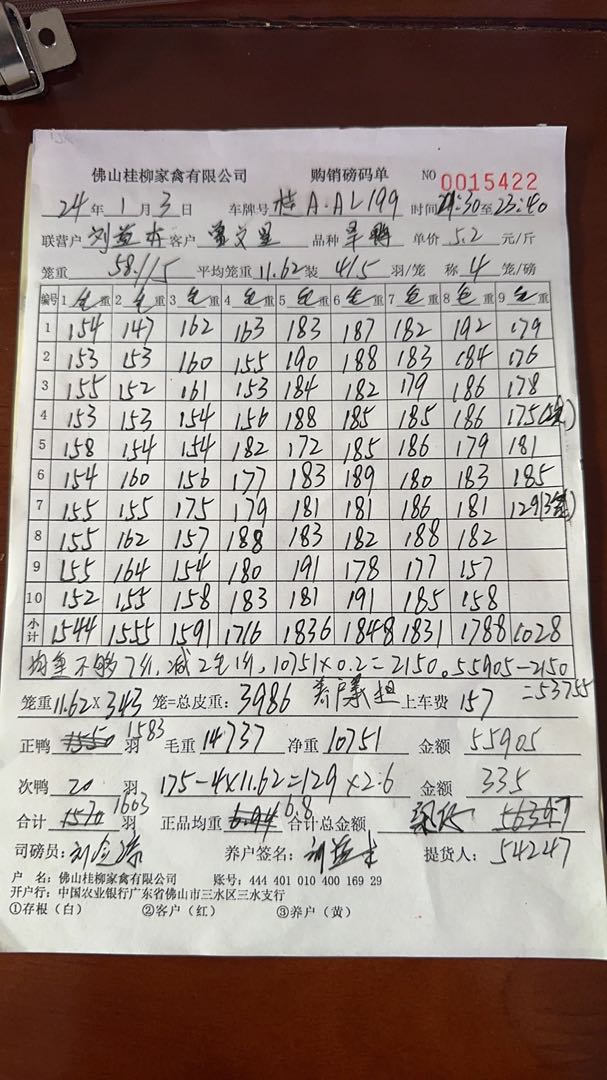 佛山桂柳家禽有限公司 购销磅码单 NO 0015422
24年1月3日 车牌号 桂A·AL199 时间21:30至23:40
联营户 刘益本 客户 曾文里 品种 旱鸭 单价 5.2 元/斤
笼重 58.1/5 平均笼重 11.62 装 4/5 羽/笼 称 4 笼/磅
编号 1 毛重 2 毛重 3 毛重 4 毛重 5 毛重 6 毛重 7 毛重 8 毛重 9 毛重
1 154 147 162 163 183 187 182 192 179
2 153 153 160 155 190 188 183 184 176
3 155 152 161 153 184 182 179 186 178
4 153 153 154 156 188 185 185 186 175
5 158 154 154 182 172 185 186 179 181
6 154 160 156 177 183 189 180 183 185
7 155 155 175 179 181 181 186 181 129(3笼)
8 155 162 157 188 183 182 188 182
9 155 164 154 180 191 178 177 157
10 152 155 158 183 181 191 185 158
小计 1544 1555 1591 1716 1836 1848 1831 1788 1028
均重不够7斤,减2毛1斤,10751×0.2=2150。55905-2150
=53755
笼重11.62×343笼=总皮重:3986 养户承担 上车费 157
正鸭 1550 1583 羽 毛重 14737 净重 10751 金额 55905
次鸭 20 羽 175-4×11.62=129×2.6 金额 335
合计 1570 1603 羽 正品均重 6.94 6.8 合计总金额 56347
司磅员: 养户签名:刘益本 提货人: 54247
户 名:佛山桂柳家禽有限公司 账号:444 401 010 400 169 29
开户行:中国农业银行广东省佛山市三水区三水支行
①存根(白) ②客户(红) ③养户(黄)